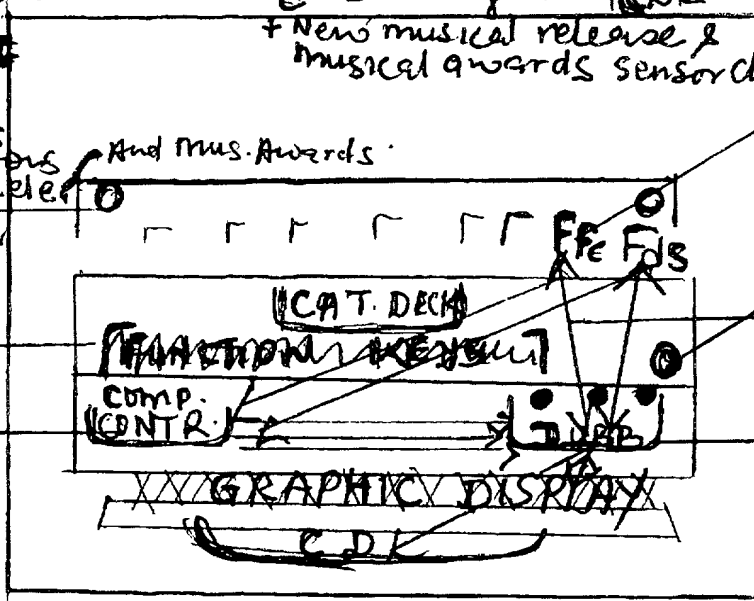 + New musical release &
musical awards sensor
And Mus. Awards
Ffc Fds
CAT. DECK
FUNCTION KEYS
COMP.
CONTR.
GRAPHIC DISPLAY
CD